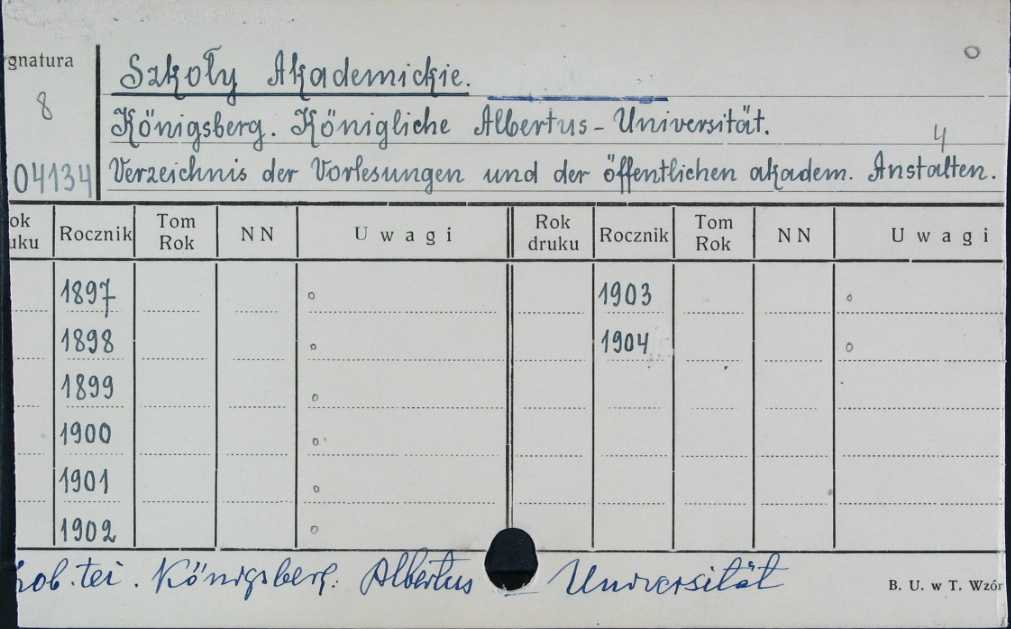 gnatura
8
04134
o
Szkoły Akademickie.
Königsberg. Königliche Albertus-Universität.
4
Verzeichnis der Vorlesungen und der öffentlichen akadem. Anstalten.
ok uku Rocznik Tom Rok NN Uwagi Rok druku Rocznik Tom Rok NN Uwagi
1897 o 1903 o
1898 o 1904 o
1899 o
1900 o
1901 o
1902 o
zob. też. Königsberg. Albertus – Universität
B. U. w T. Wzór